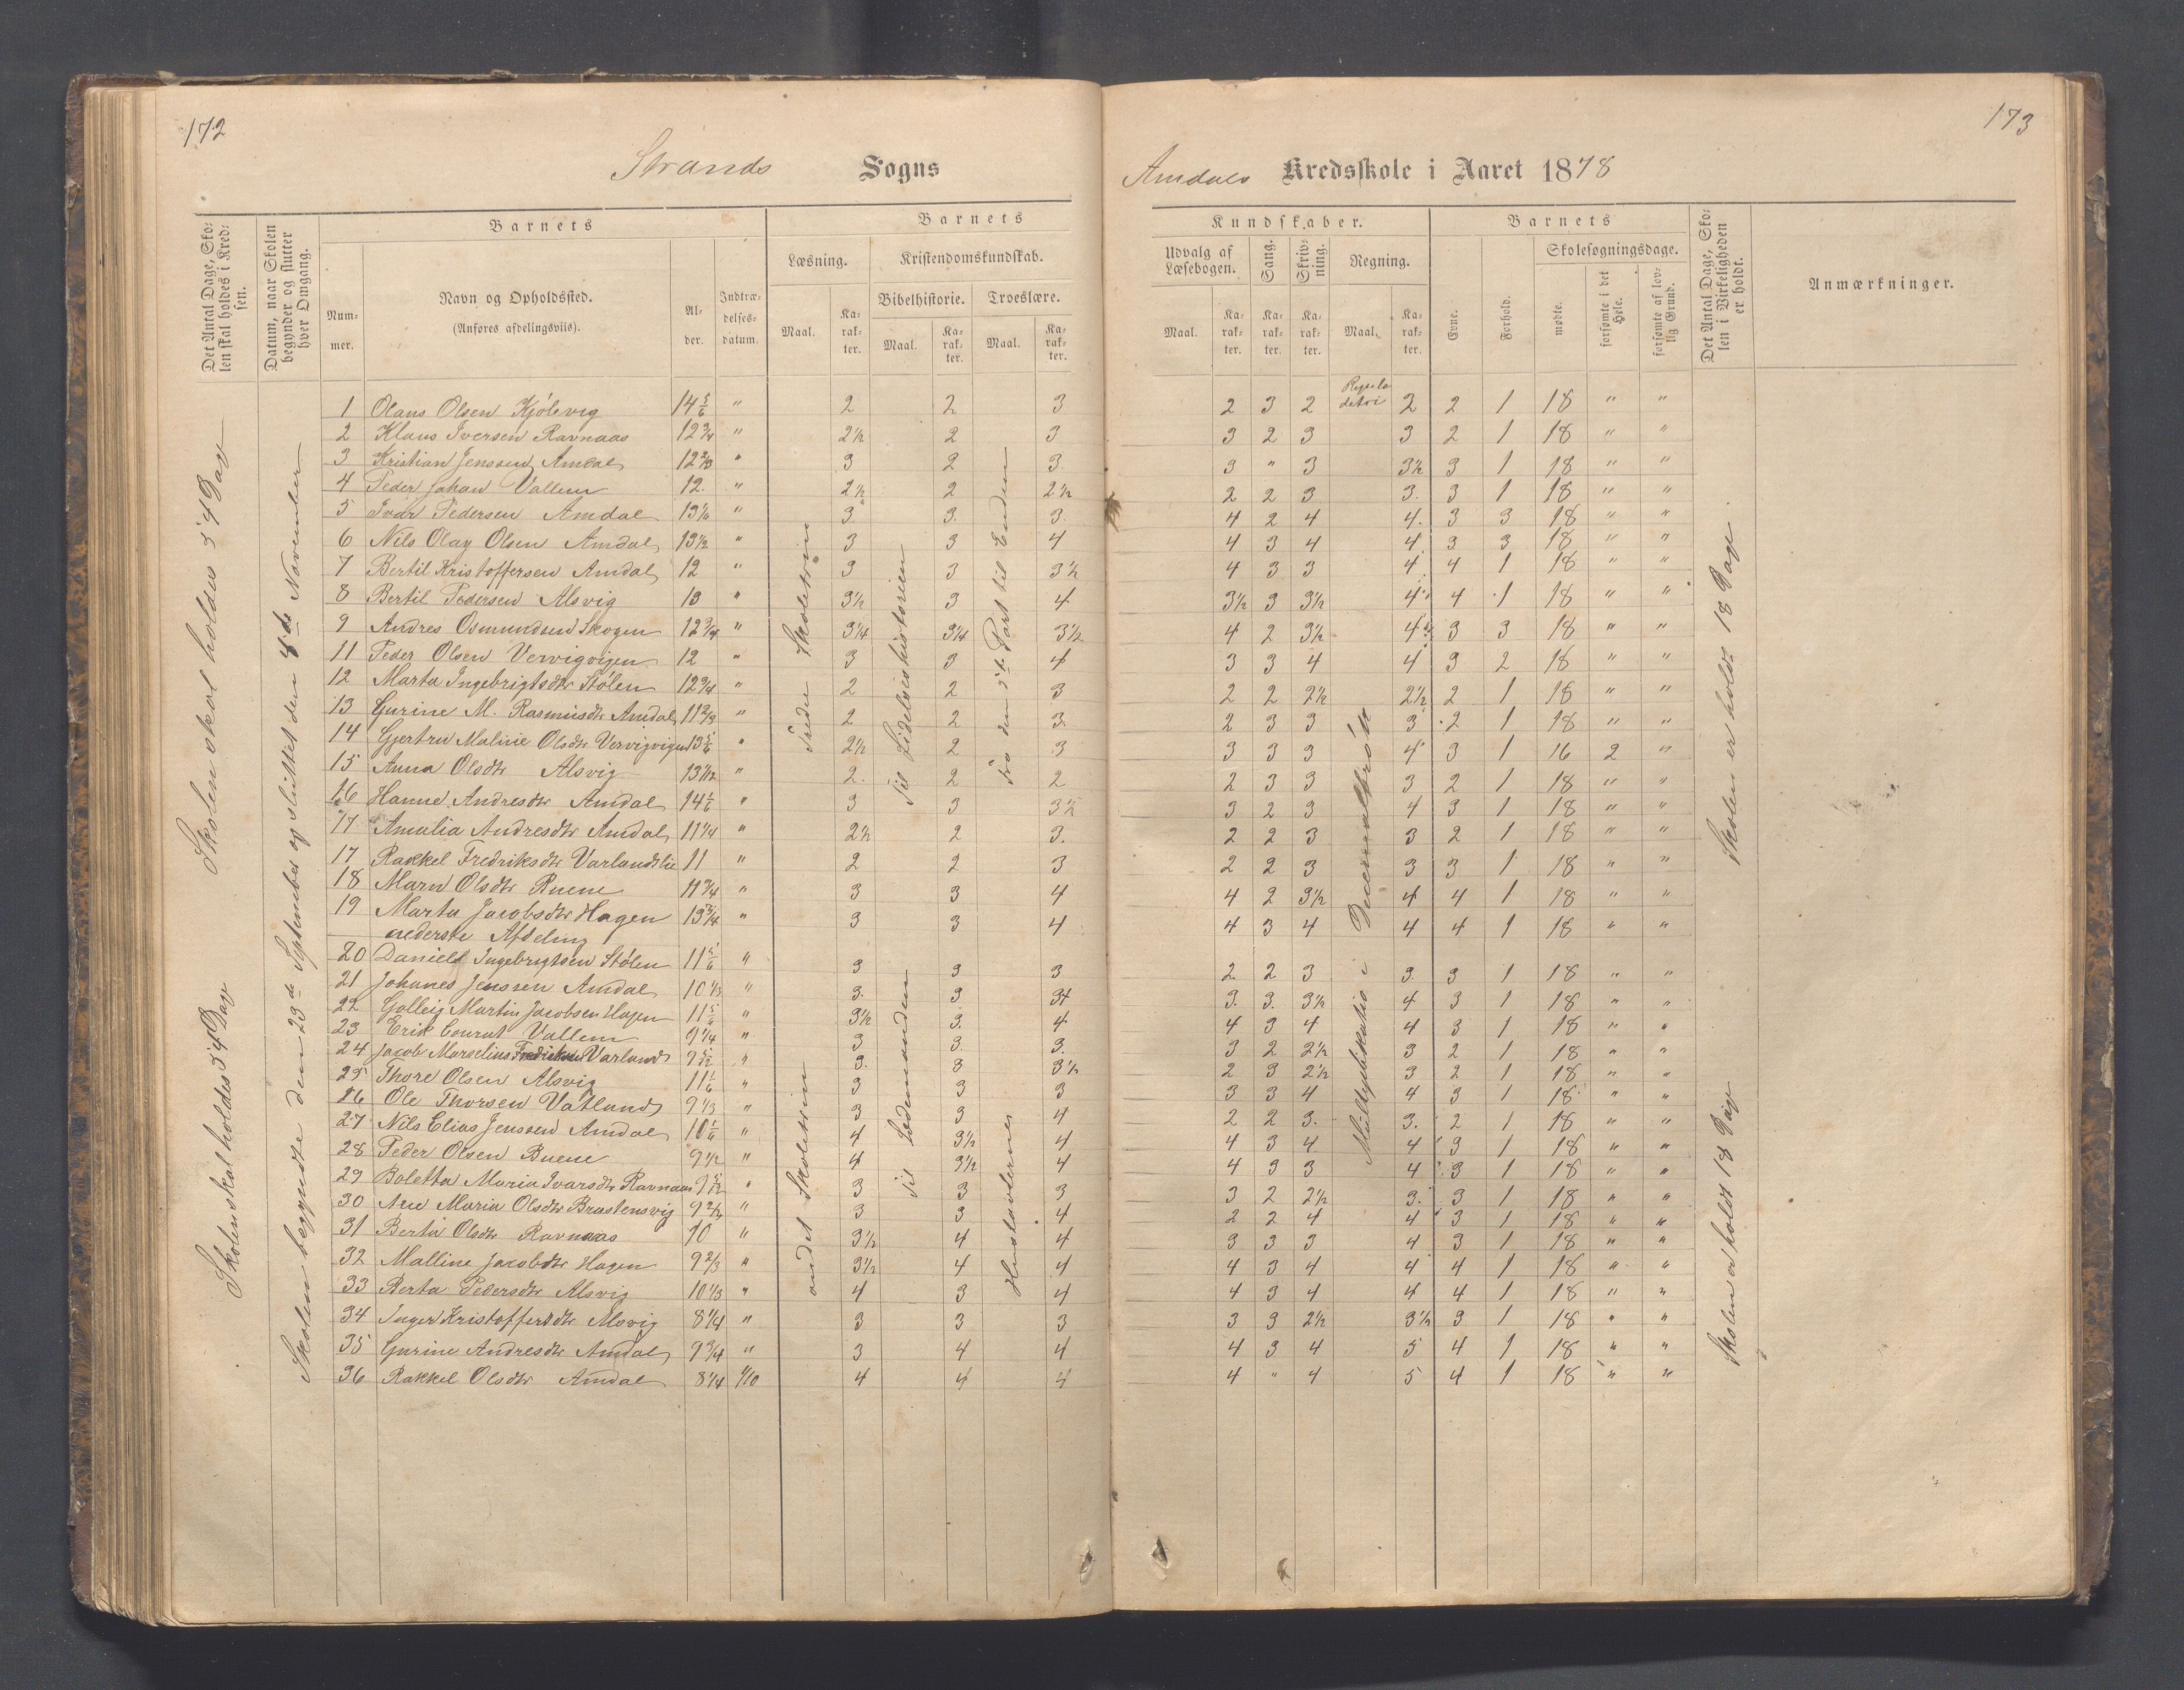 172
Strands Sogns
Det Antal Dage, Sko-
len skal holdes i Kred-
sen.
Datum, naar Skolen
begynder og slutter
hver Omgang.
Barnets
Num-
mer.
Navn og Opholdssted.
(Anføres afdelingsviis).
Al-
der.
Indtræ-
delses-
datum.
Barnets
Læsning.
Kristendomskundskab.
Bibelhistorie.
Troeslære.
Maal.
Ka-
rak-
ter.
Maal.
Ka-
rak-
ter.
Maal.
Ka-
rak-
ter.
Skolen skal holdes 54 Dage
Skolen skal holdes 54 Dage
Skolen begyndte den 23de September og sluttet den 8de November
Tredie Skoletrin
Til Lidelseshistorien
fra den 2de Part til Enden
andet Skoletrin
1 Olaus Olsen Kjölevig 14 5/6 " 2 2 3
2 Klaus Iversen Ravnaas 12 3/4 " 2 1/2 2 3
3 Kristian Jenssen Amdal 12 2/3 " 3 2 3
4 Peder Johan Vallem 12. " 2 1/2 2 2 1/2
5 Ivar Pedersen Amdal 13 1/6 " 3 3. 3.
6 Nils Olay Olsen Amdal 13 1/2 " 3 3 4
7 Bertil Kristoffersen Amdal 12 " 3 3 3 1/2
8 Bertil Pedersen Alsvig 13 " 3 1/2 3 4
9 Andres Osmundsen Skogen 12 3/4 " 3 1/4 3 1/4 3 1/2
11 Peder Olsen Vervigvigen 12 " 3 3 4
12 Marta Ingebrigtsdtr Stölen 12 3/4 " 2 2 3
13 Gurine M. Rasmusdtr Amdal 11 2/3 " 2 2 3.
14 Gjertru Maline Olsdtr Vervigvigen 13 5/6 " 2 1/2 2 3
15 Anna Olsdtr Alsvig 13 1/12 " 2. 2 2
16 Hanne Andresdtr Amdal 14 1/6 " 3 3 3 1/2
17 Amalia Andresdtr Amdal 11 1/4 " 2 1/2 2 3.
17 Rakkel Fredriksdtr Varlandslie 11 " 2 2 3
18 Marn Olsdtr Buene 11 3/4 " 3 3 4
19 Marta Jacobsdtr Hagen 13 3/4 " 3 3 4
nederste Afdeling
20 Daniel Ingebrigtsen Stölen 11 5/6 " 3 3 3
21 Johanes Jenssen Amdal 10 1/3 " 3. 3 3+
22 Golleig Martin Jacobsen Hagen 11 5/6 " 3 1/2 3. 4
23 Erik Conrat Vallem 9 1/4 " 3 3. 3.
24 Jacob Marselius Fredriksen Varland 9 5/12 " 3. 3 3 1/2
25 Thore Olsen Alsvig 11 1/6 " 3 3 3
26 Ole Thorsen Vatland 9 1/3 " 3 3 4
27 Nils Elias Jenssen Amdal 10 1/6 " 4 3 1/2 4
28 Peder Olsen Buene 9 1/2 " 4 3 1/2 4
29 Boletta Maria Ivarsdtr Ravnaas 9 5/12 " 3 3 3
30 Ane Maria Olsdtr Brastensvig 9 2/3 " 3 3 4
31 Berta Olsdtr Ravnaas 10 " 3 1/2 4 4
32 Malline Jacobsdtr Hagen 9 2/3 " 3 1/2 4 4
33 Berta Pedersdtr Alsvig 10 1/3 " 4 3 4
34 Inger Kristoffersdtr Alsvig 8 1/4 " 3 3 3
35 Gurine Andresdtr Amdal 9 3/4 " 3 4 4
36 Rakkel Olsdtr Amdal 8 1/4 1/10 4 4 4
173
Amdals Kredsskole i Aaret 1878
Kundskaber.
Udvalg af
Læsebogen.
Sang.
Skriv-
ning.
Regning.
Maal.
Ka-
rak-
ter.
Ka-
rak-
ter.
Ka-
rak-
ter.
Maal.
Ka-
rak-
ter.
Barnets
Evne.
Forhold.
Skolesøgningsdage.
mødte.
forsømte i det
Hele.
forsømte af lov-
lig Grund.
Det Antal Dage, Sko-
len i Virkeligheden
er holdt.
Anmærkninger.
Multiplikatio i Decemalbrök
Skolen er holdt 18 Dage.
Skolen er holdt 18 Dage
2 3 2 Regula detri 2 2 1 18 " "
3 2 3 3 2 1 18 " "
3 " 3 3 1/2 3 1 18 " "
2 2 3 3. 3 1 18 " "
4 2 4 4. 3 3 18 " "
4 3 4 4 3 3 18 " "
4 3 3 4 4 1 18 " "
3 1/2 3 3 1/2 4 4 1 18 " "
4 2 3 1/2 4 3 3 18 " "
3 3 4 4 3 2 18 " "
2 2 2 1/2 2 1/2 2 1 18 " "
2 3 3 3 2 1 18 " "
3 3 3 4 3 1 16 2 "
2 3 3 3 2 1 18 " "
3 2 3 4 3 1 18 " "
2 2 3 3 2 1 18 " "
2 2 3 3 3 1 18 " "
4 2 3 1/2 4 4 1 18 " "
4 3 4 4 4 1 18 " "
2 2 3 3 3 1 18 " "
3. 3. 3 1/2 4 3 1 18 " "
4 3 4 4 3 1 18 " "
3 2 2 1/2 3 2 1 18 " "
2 3 2 1/2 3 2 1 18 " "
3 3 4 4 3 1 18 " "
2 2 3. 3. 2 1 18 " "
4 3 4 4 3 1 18 " "
4 3 3 4 3 1 18 " "
3 2 2 1/2 3. 3 1 18 " "
2 2 4 4 3 1 18 " "
3 3 3 4 3 1 18 " "
4 3 4 4 4 1 18 " "
4 3 4 4 4 1 18 " "
3 3 2 1/2 3 1/2 3 1 18 " "
4 3 4 5 4 1 18 " "
4 " 4 5 4 1 18 " "